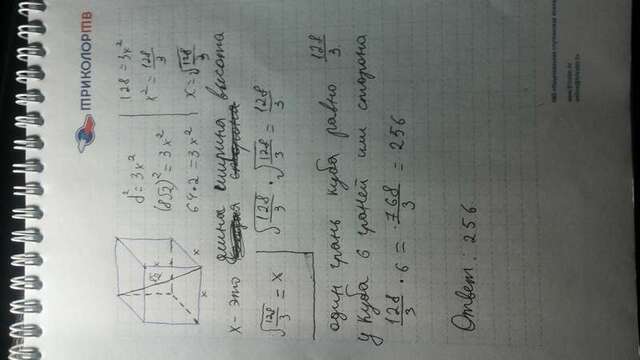 ТРИКОЛОР ТВ
8√2
x
x
x
d² = 3x²
(8√2)² = 3x²
64 · 2 = 3x²
128 = 3x²
x² = 128/3
x = √128/3
x - это длина ширина высота
√128/3 = x
√128/3 · √128/3 = 128/3
один грань куба равно 128/3
у куба 6 граней или сторона
128/3 · 6 = 768/3 = 256
Ответ: 256